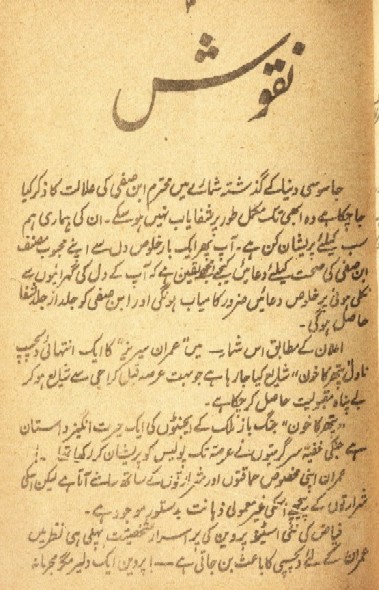 ۳
نقوش
جاسوسی دنیا کے گذشتہ شمارے میں محترم ابن صفی کی علالت کا ذکر کیا
جا چکا ہے وہ ابھی تک مکمل طور پر شفایاب نہیں ہو سکے۔ ان کی بیماری ہم
سب کیلئے پریشان کن ہے۔ آپ پھر ایک بار خلوص دل سے اپنے محبوب مصنف
ابن صفی کی صحت کیلئے دعائیں کیجئے مجھے یقین ہے کہ آپ کے دل کی گہرائیوں سے
نکلی ہوئی پر خلوص دعائیں ضرور کامیاب ہوگی اور ابن صفی کو جلد از جلد شفا
حاصل ہوگی۔
اعلان کے مطابق اس شمارے میں "عمران سیریز" کا ایک انتہائی دلچسپ
ناول "پتھر کا خون" شایع کیا جا رہا ہے جو بہت عرصہ قبل کراچی سے شایع ہو کر
بے پناہ مقبولیت حاصل کر چکا ہے۔
"پتھر کا خون" جنگ باز ملک کے ایجنٹوں کی ایک حیرت انگیز داستان
ہے جنکی خفیہ سرگرمیوں نے عرصہ تک پولیس کو پریشان کر رکھا تھا۔!
عمران اپنی مخصوص حماقتوں اور شرارتوں کے ساتھ سامنے آتا ہے لیکن اسکی
شرارتوں کے پیچھے اسکی غیر معمولی ذہانت بدستور موجود ہے۔
فیاض کی نئی اسٹینو پروین کی پراسرار شخصیت پہلی ہی نظر میں
عمران کے لئے دلچسپی کا باعث بن جاتی ہے ——! پروین ایک دلیر مگر مجرمانہ